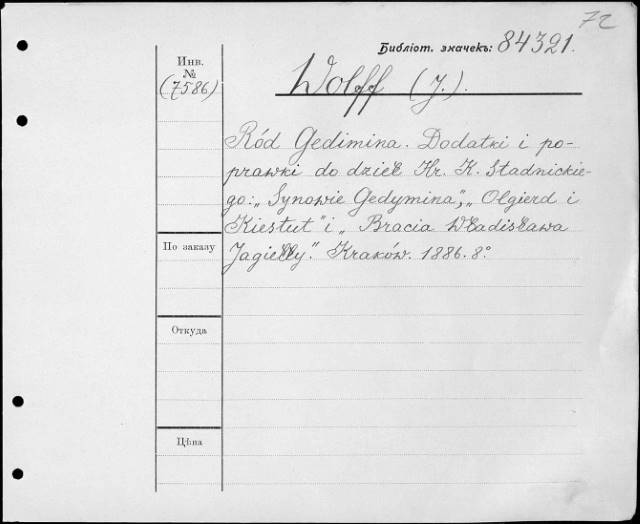 72
Библіот. значекъ: 84321.
Инв.
№
(7586)
Wolff (J.).
Ród Gedimina. Dodatki i po-
prawki do dzieł Hr. K. Stadnickie-
go: „Synowie Gedymina", „Olgierd i
Kiestut" i „Bracia Władisława
Jagiełły". Kraków. 1886. 8°.
По заказу
Откуда
Цѣна